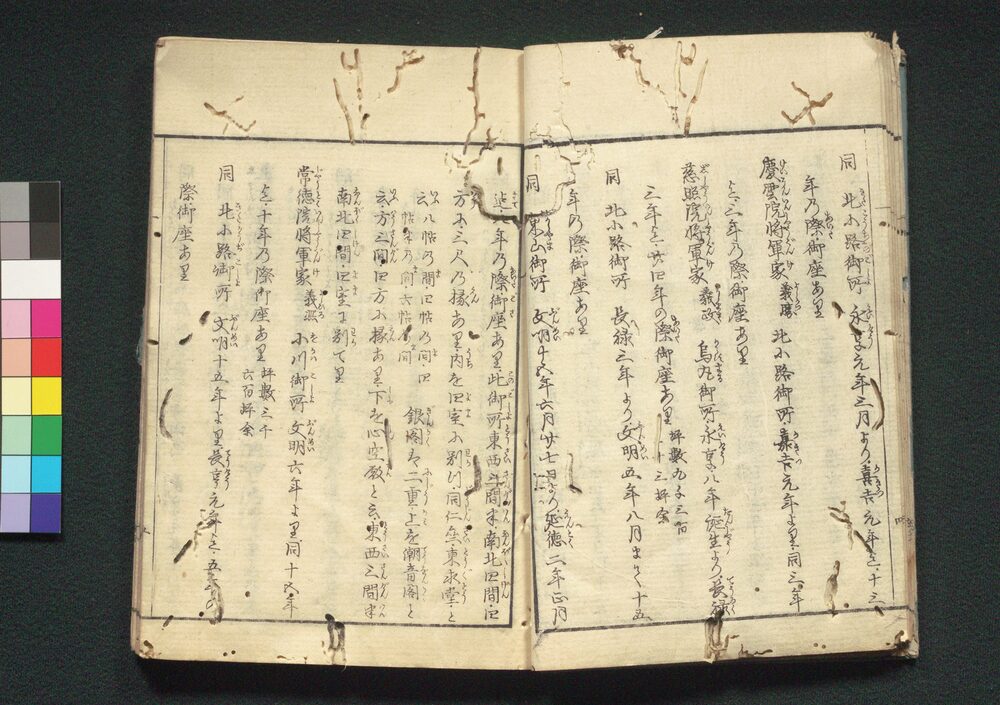 同 北小路御所 永享元年三月より嘉吉元年迄十三
年乃際御座あり
慶雲院将軍家 義勝 北小路御所 嘉吉元年より同三年
迄三年乃際御座あり
慈照院将軍家 義政 烏丸御所 永享八年誕生より長禄
三年迄廿四年の際御座あり 坪数九千三百 十三坪余
同 北小路御所 長禄三年より文明五年八月まで十五
年乃際御座あり
同 東山御所 文明十五年六月廿七日より延徳二年正月
迄八年乃際御座あり此御所東西三間半南北四間四
方に三尺乃縁あり内を四室に別つ同仁斎東求堂と
云八帖の間四帖乃間四
帖半乃間六帖乃間 銀閣は二重上を潮音閣と
云方三間四方に縁あり下を心空殿と云東西三間半
南北四間四室に別てり
常徳院将軍家 義煕 小川御所 文明六年より同十五年
迄十年乃際御座あり 坪数三千 六百坪余
同 北小路御所 文明十五年より長享元年迄五年の
際御座あり